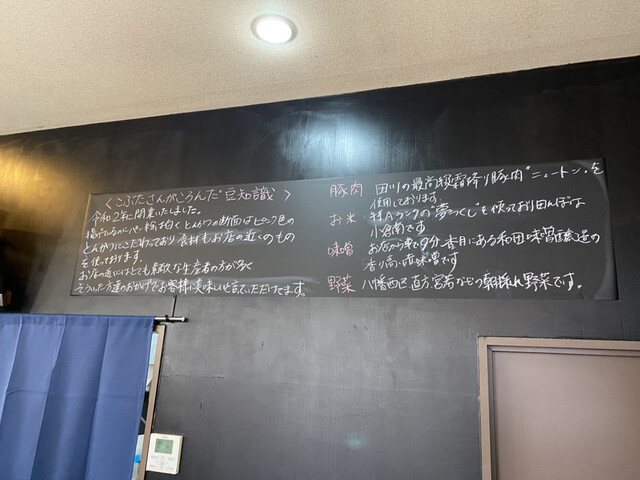 〈こぶたさんがころんだ豆知識〉
令和2年に開業いたしました。
揚げてるのにパン粉が白くとんかつの断面はピンク色の
とんかつにこだわっており食材もお店の近くのもの
を使っております。
お店の近くにはとても素敵な生産者の方が多く
そういった方達のおかげでお客様に美味しいと言っていただけてます。
豚肉 田川の最高級霜降り豚肉"ニュートン"を
使用しております。
お米 特Aランクの"夢つくし"を使っており田んぼは
小倉南です
味噌 お店から車で 分 香月にある和田味噌 造の
香り高い 味噌です
野菜 八幡西区 直方 宮若などの朝採れ野菜です。